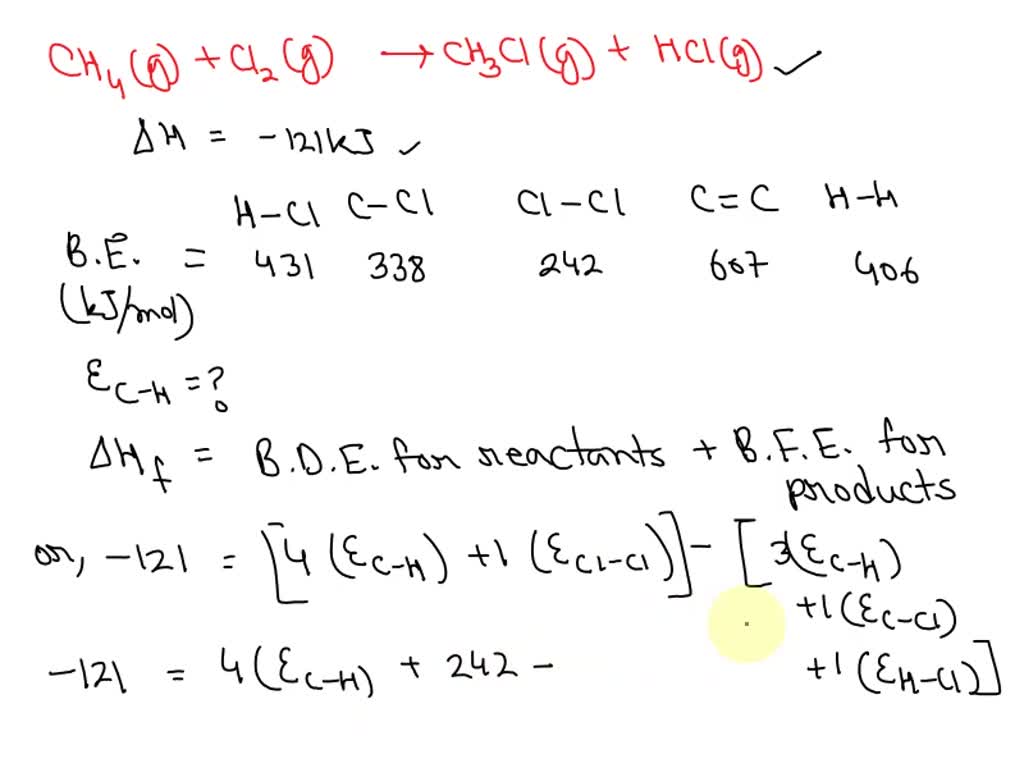 CH₄(g) + Cl₂(g) → CH₃Cl(g) + HCl(g) ✓
ΔH = -121kJ ✓
H-Cl C-Cl Cl-Cl C=C H-H
B.E. = 431 338 242 607 406
(kJ/mol)
ℰC-H = ?
ΔHf = B.D.E. for reactants + B.F.E. for
products
or, -121 = [4 (ℰC-H) + 1 (ℰCl-Cl)] - [3(ℰC-H)
+1(ℰC-Cl)
+1(ℰH-Cl)]
-121 = 4(ℰC-H) + 242 -